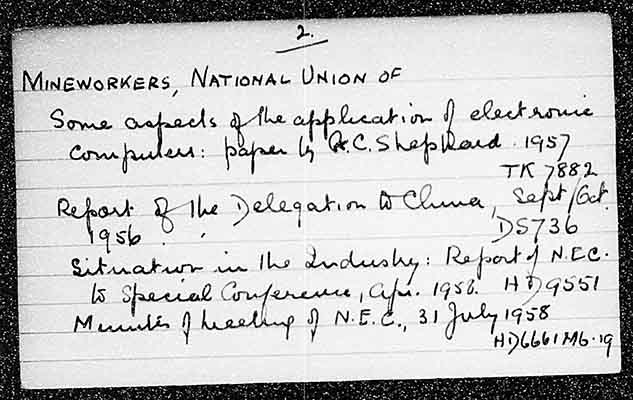 2.
MINEWORKERS, NATIONAL UNION OF
Some aspects of the application of electronic
computers: paper by C. Shephard. 1957
TK 7882
Report of the Delegation to China, Sept/Oct.
1956.
DS736
Situation in the Industry: Report of N.E.C.
to Special Conference, Apr. 1958. HD9551
Minutes of meeting of N.E.C., 31 July 1958
HD6661M6.19